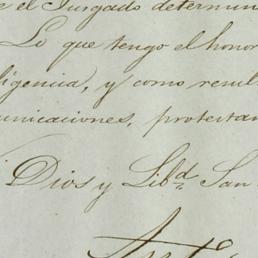 e el Juzgado determin
Lo que tengo el honor
ligencia, y como resul
unicaciones, protestan
Dios y Lib.d San